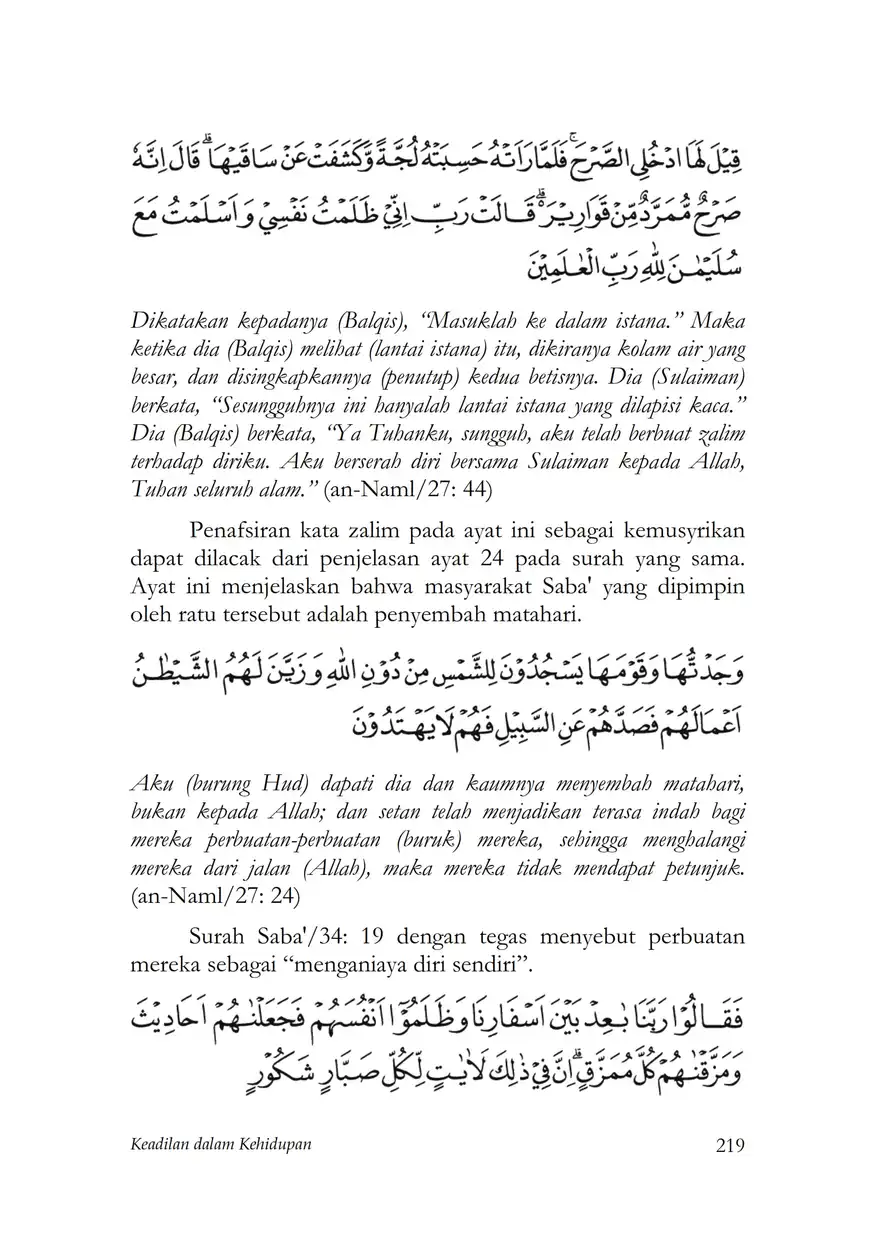 قِيْلَ لَهَا ادْخُلِى الصَّرْحَۚ فَلَمَّا رَاَتْهُ حَسِبَتْهُ لُجَّةً وَّكَشَفَتْ عَنْ سَاقَيْهَاۗ قَالَ اِنَّهٗ
صَرْحٌ مُّمَرَّدٌ مِّنْ قَوَارِيْرَەۗ قَالَتْ رَبِّ اِنِّيْ ظَلَمْتُ نَفْسِيْ وَاَسْلَمْتُ مَعَ
سُلَيْمٰنَ لِلّٰهِ رَبِّ الْعٰلَمِيْنَ
Dikatakan kepadanya (Balqis), “Masuklah ke dalam istana.” Maka
ketika dia (Balqis) melihat (lantai istana) itu, dikiranya kolam air yang
besar, dan disingkapkannya (penutup) kedua betisnya. Dia (Sulaiman)
berkata, “Sesungguhnya ini hanyalah lantai istana yang dilapisi kaca.”
Dia (Balqis) berkata, “Ya Tuhanku, sungguh, aku telah berbuat zalim
terhadap diriku. Aku berserah diri bersama Sulaiman kepada Allah,
Tuhan seluruh alam.” (an-Naml/27: 44)
Penafsiran kata zalim pada ayat ini sebagai kemusyrikan
dapat dilacak dari penjelasan ayat 24 pada surah yang sama.
Ayat ini menjelaskan bahwa masyarakat Saba' yang dipimpin
oleh ratu tersebut adalah penyembah matahari.
وَجَدْتُّهَا وَقَوْمَهَا يَسْجُدُوْنَ لِلشَّمْسِ مِنْ دُوْنِ اللّٰهِ وَزَيَّنَ لَهُمُ الشَّيْطٰنُ
اَعْمَالَهُمْ فَصَدَّهُمْ عَنِ السَّبِيْلِ فَهُمْ لَا يَهْتَدُوْنَ
Aku (burung Hud) dapati dia dan kaumnya menyembah matahari,
bukan kepada Allah; dan setan telah menjadikan terasa indah bagi
mereka perbuatan-perbuatan (buruk) mereka, sehingga menghalangi
mereka dari jalan (Allah), maka mereka tidak mendapat petunjuk.
(an-Naml/27: 24)
Surah Saba'/34: 19 dengan tegas menyebut perbuatan
mereka sebagai “menganiaya diri sendiri”.
فَقَالُوْا رَبَّنَا بٰعِدْ بَيْنَ اَسْفَارِنَا وَظَلَمُوْٓا اَنْفُسَهُمْ فَجَعَلْنٰهُمْ اَحَادِيْثَ
وَمَزَّقْنٰهُمْ كُلَّ مُمَزَّقٍۗ اِنَّ فِيْ ذٰلِكَ لَاٰيٰتٍ لِّكُلِّ صَبَّارٍ شَكُوْرٍ
Keadilan dalam Kehidupan 219